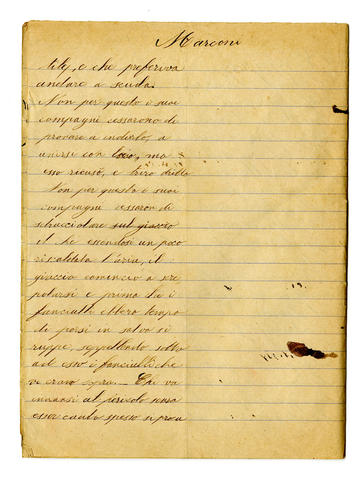 Marconi
tity, e che preferiva
andare a scuola.
Non per questo i suoi
compagni cessarono di
provare a indurlo, a
unirsi con loro, ma
esso ricusò, e tirò dritto
Non per questo i suoi
compagni cessaron di
sdrucciolare sul giaccio
il che essendosi un poco
riscaldata l'aria, il
giaccio cominciò a scre
polarsi e prima che i
fanciulli ebbero tempo
di porsi in salvo si
ruppe, seppellendo sotto
ad esso i fanciulli che
vi erano sopra. Chi va
innanzi al pericolo senza
esser cauto spesso si prova